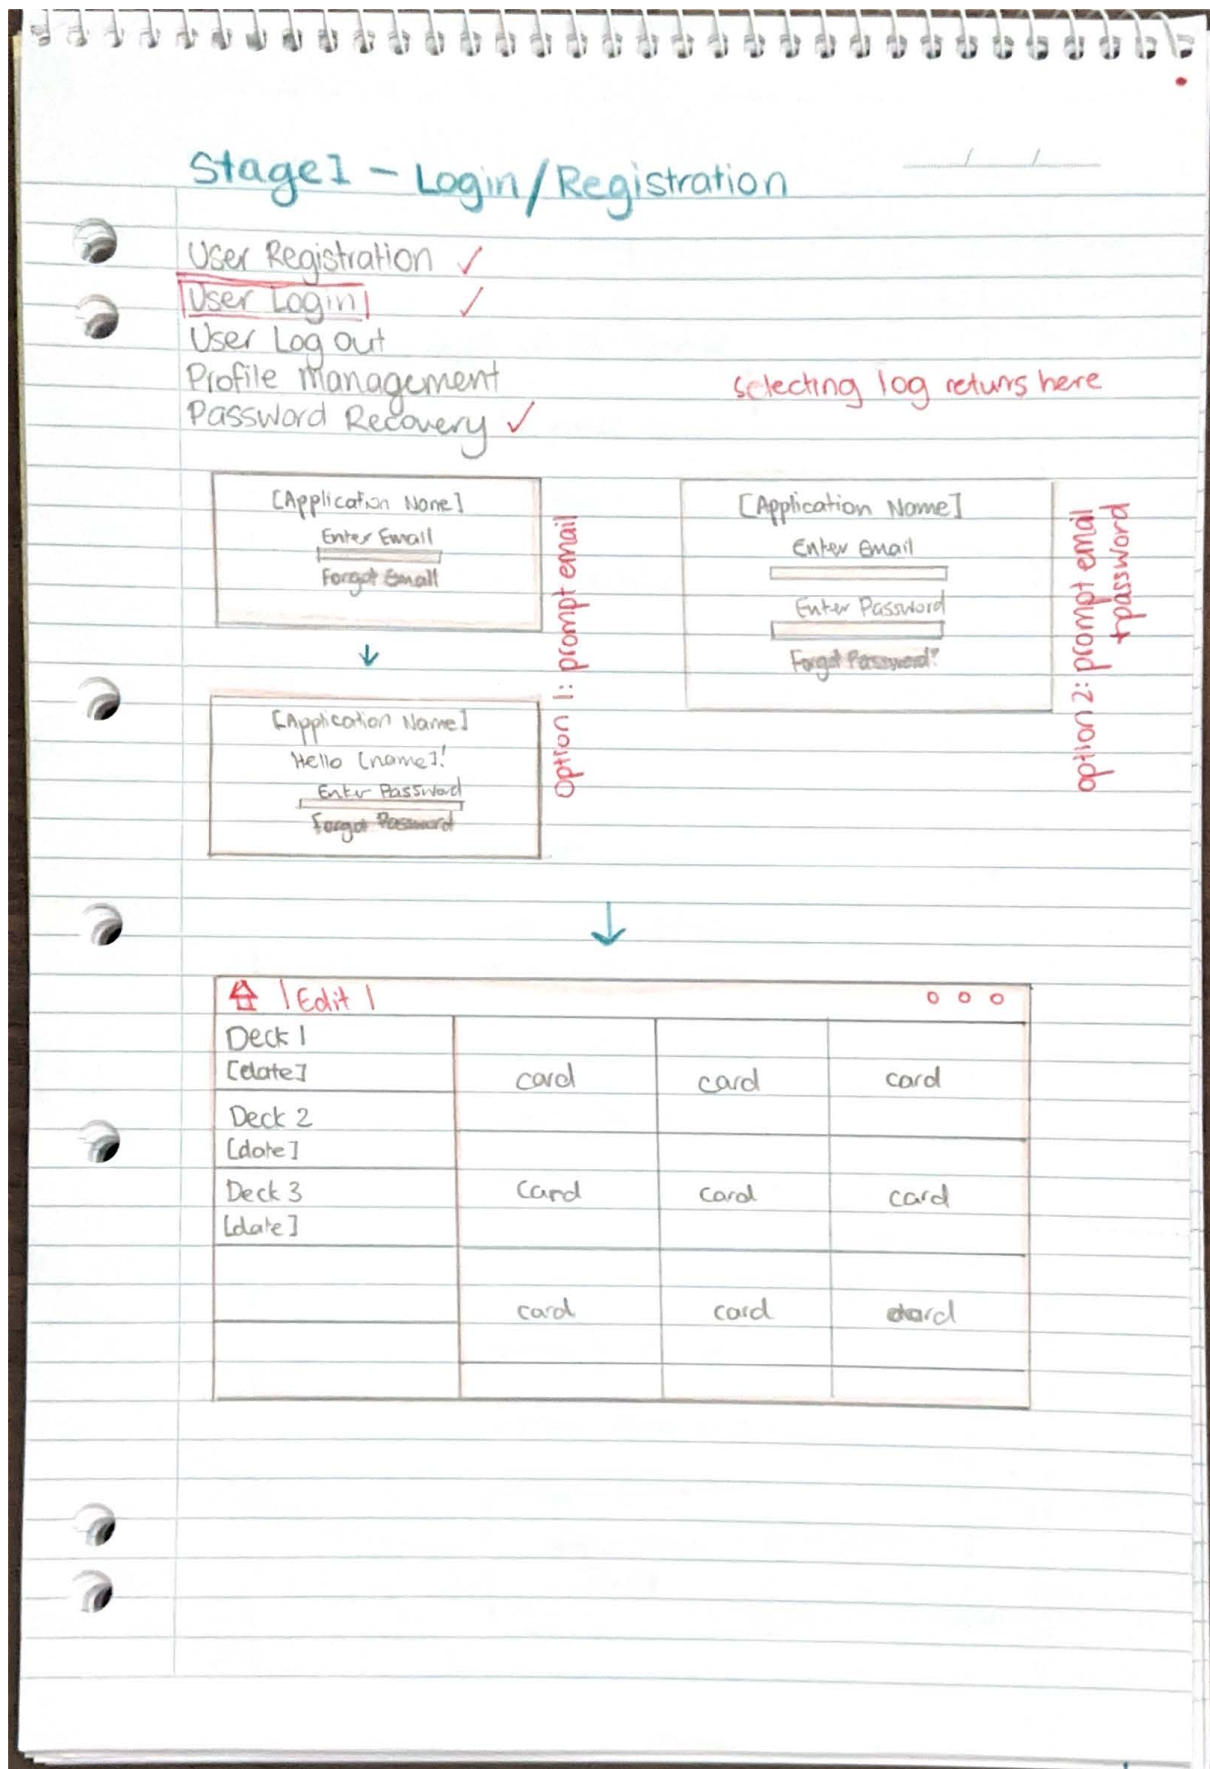 Stage 1 - Login/Registration
User Registration ✓
User Login ✓
User Log out
Profile Management
selecting log returs here
Password Recovery ✓
[Application Name]
Enter Email
Forgot Email
[Application Name]
Hello [name]!
Enter Password
Forgot Password
Option 1: prompt email
[Application Name]
Enter Email
Enter Password
Forgot Password?
option 2: prompt email
+password
| Edit |
Deck 1
[date]
Deck 2
[date]
Deck 3
[date]
card card card
card card card
card card card